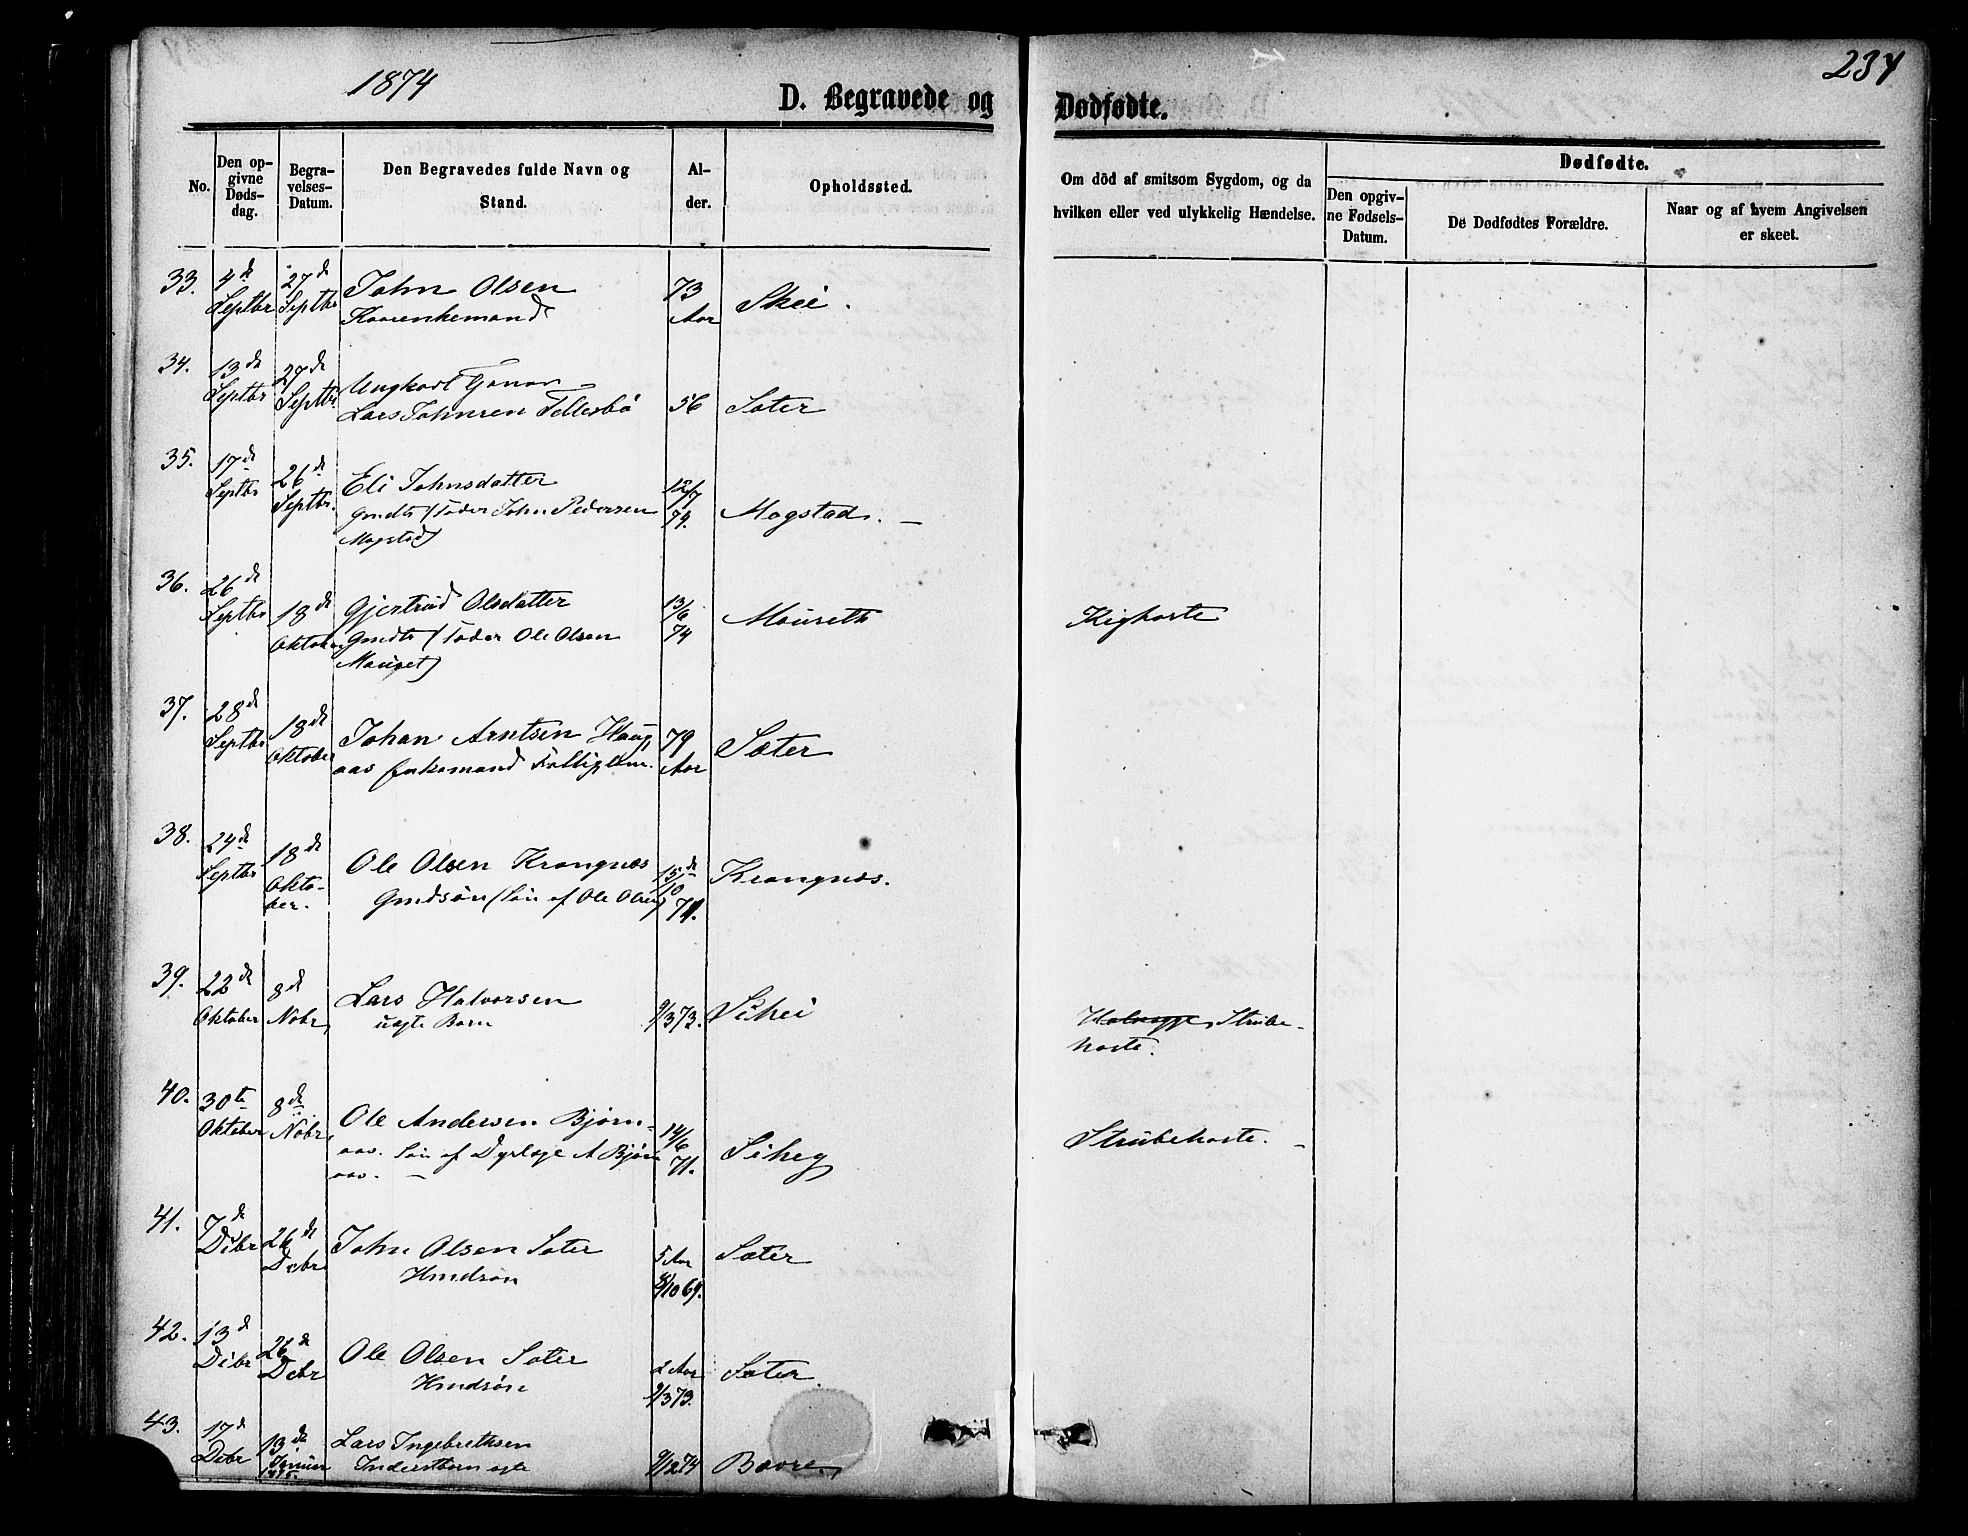 1874
237
D. Begravede og Dødfødte.
No.
Den opgivne Dødsdag.
Begravelses-Datum.
Den Begravedes fulde Navn og Stand.
Alder.
Opholdssted.
Om död af smitsom Sygdom, og da hvilken eller ved ulykkelig Hændelse.
Dødfødte.
Den opgivne Fødsels-Datum.
De Dødfødtes Forældre.
Naar og af hvem Angivelsen er skeet.
33. 4de Septbr 27de Septbr John Olsen 73 Aar Skei.
34. 13de Septbr 27de Septbr. Ungkarl
Lars Johnsen 56 Sæter
35. 17de Septbr 26de Septbr. Eli Johnsdatter 12/7 74. Mogstad. –
Gmdts (Fader John Pedersen
Mogstad)
36. 26de Septbr 18de Oktober Gjertrud Olsdatter 13/6 74 Maureth Kighoste
Gmdts (Fader Ole Olsen
Mauset)
37. 28de Septbr 18de Oktober Johan Arntsen Haug 79 Aar Sæter
aas Enkemand
38. 24de Septbr 18de Oktober. Ole Olsen Krangnæs 15de/10 Krangnæs.
Gmdsøn (Søn af Ole Olsen)
39. 22de Oktober 8de Nobr, Lars Halvorsen 9/3 73. Strube-
uægte Barn
hoste.
40. 30te Oktober 8de Nobr, Ole Andersen Bjørn- 14/6 71. Strubehoste. –
aas. Søn af Dyrlæge A Bjørn
aas. –
41. 7de Debr 26de Debr John Olsen Sæter 5 Aar 69. Sæter
Hmdsøn
42. 13de Debr 26de Debr Ole Olsen Sæter 2 Aar 9/3 73. Sæter.
Hmdsøn
43. 17de Debr 13de Januar 1875. Lars Ingebrethsen 9/12 74 Bævre.
Inderstbarn ægte